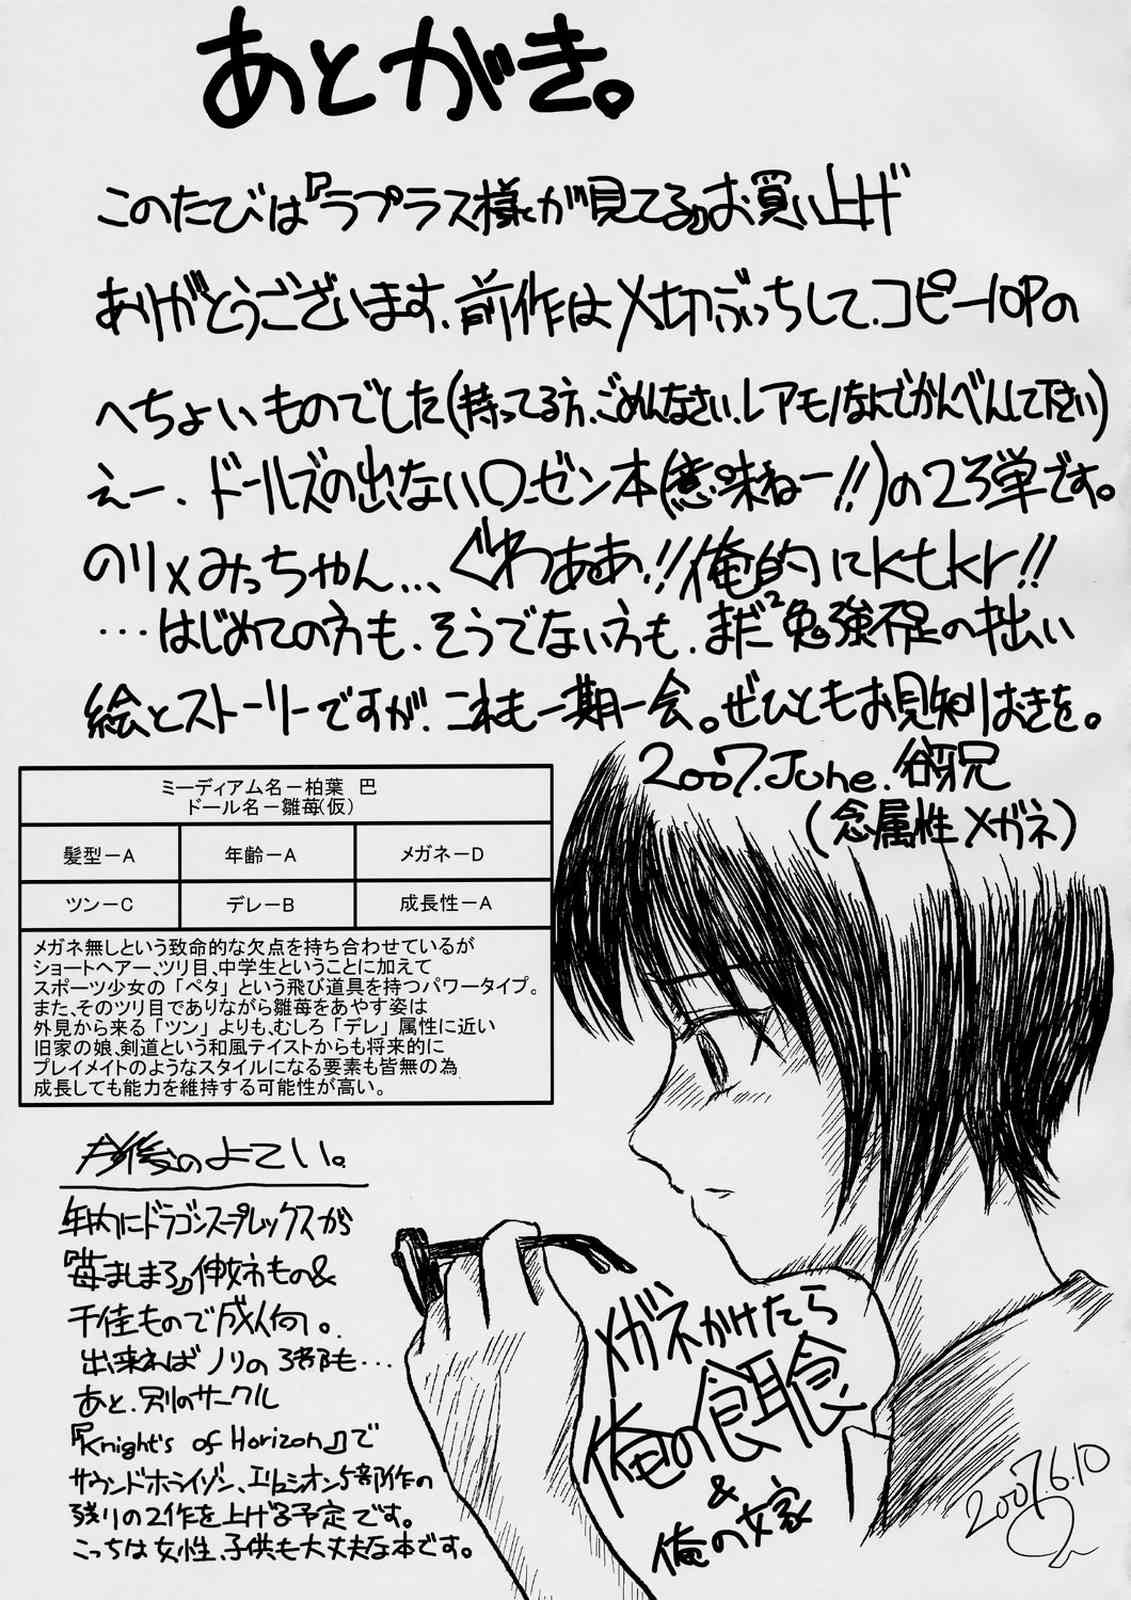 あとがき。
このたびは『ラプラス様が見てる』お買い上げ
ありがとうございます、前作は〆切ぶっちして、コピー10Pの
へちょいものでした(持ってる方、ごめんなさい、レアモノなんでかんべんして下さい)
えー、ドールズの出ないローゼン本(意味ねー!!)の2ろ弾です。
のり×みっちゃん…、ぐわぁあ!!俺的にktkr!!
…はじめての方も、そうでない方も、まだ²勉強不足の拙い
絵とストーリーですが、これも一期一会。ぜひともお見知りおきを。
2007.June.谷牙兄
(念属性メガネ)
ミーディアム名－柏葉　巴
ドール名－雛苺(仮)
髪型－A
年齢－A
メガネ－D
ツン－C
デレ－B
成長性－A
メガネ無しという致命的な欠点を持ち合わせているが
ショートヘアー、ツリ目、中学生ということに加えて
スポーツ少女の「ペタ」という飛び道具を持つパワータイプ。
また、そのツリ目でありながら雛苺をあやす姿は
外見から来る「ツン」よりも、むしろ「デレ」属性に近い
旧家の娘、剣道という和風テイストからも将来的に
プレイメイトのようなスタイルになる要素も皆無の為
成長しても能力を維持する可能性が高い。
今後のよてい。
年内にドラゴンスープレックスが
『苺ましまろ』伸姉もの&
千佳もので成人向。
出来ればノリの3部も…
あと、別のサークル
『Knight's of Horizon』で
サウンドホライゾン、エリュシオン5部作の
残りの2作を上げる予定です。
こっちは女性、子供も大丈夫な本です。
メガネかけたら
俺の餌食
&
俺の嫁
2007.6.10